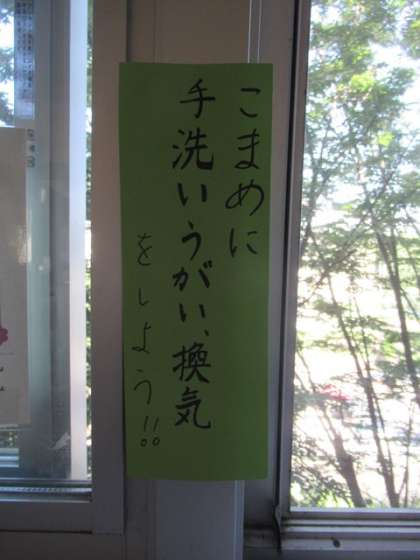 こまめに
手洗いうがい、換気
をしよう!!